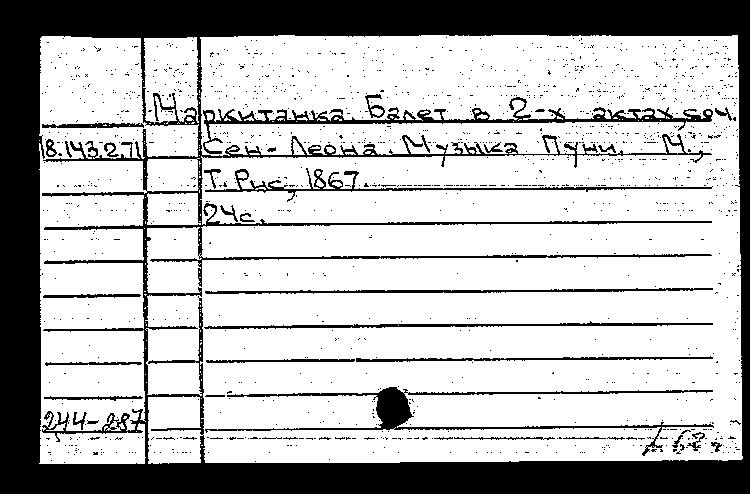 Маркитанка. Балет в 2-х актах, соч.
18.143.2.71 Сен-Леона. Музыка Пуни. М.,
Т. Рис, 1867.
24с.
244-287